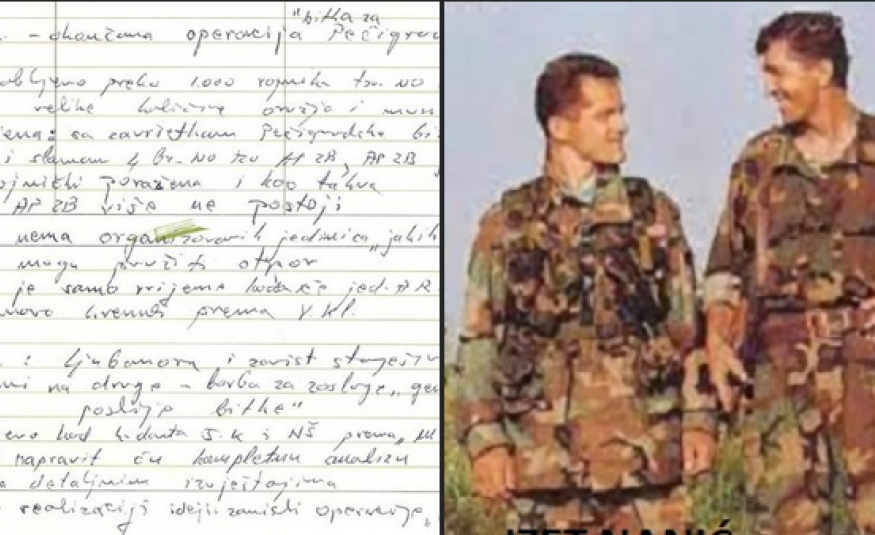 "bitka za
. - okončana operacija Pećigrad
obljeno preko 1.000 vojnika tzv. NO
velike količine oružja i mun
jena: sa završetkom Pećigradske bi
i slamam 4 br. NO tzv AP ZB, AP ZB
ojnički poražena i kao takva
AP ZB više ne postoji
nema organizovanih jedinica, jakih
mogu pružiti otpor
je samo vrijeme kada će jed. AR
novo krenuti prema V. Kl.
. : ljubomora i zavist starješin
mi na druge - borba za zasluge,, gen
poslije bitke"
eno kod k-danta 5.K i NŠ prema,,
napravit ću kompletnu analizu
a detaljnim izvještajima
realizacija ideji-zamisli operacije,,
IZET NANIĆ